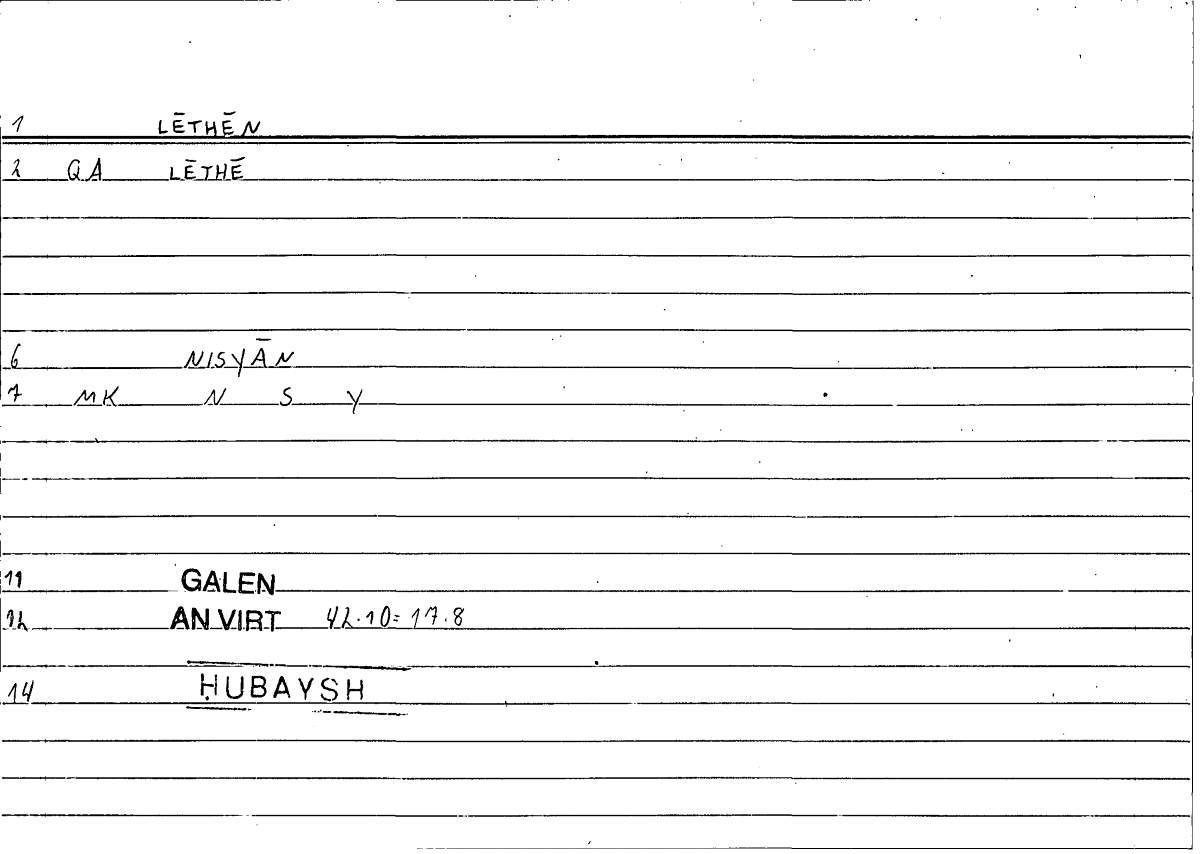 1 LĒTHĒN
2 QA LĒTHĒ
6 NISYĀN
7 MK N S Y
11 GALEN
12 AN VIRT 42.10=17.8
14 ḤUBAYSH